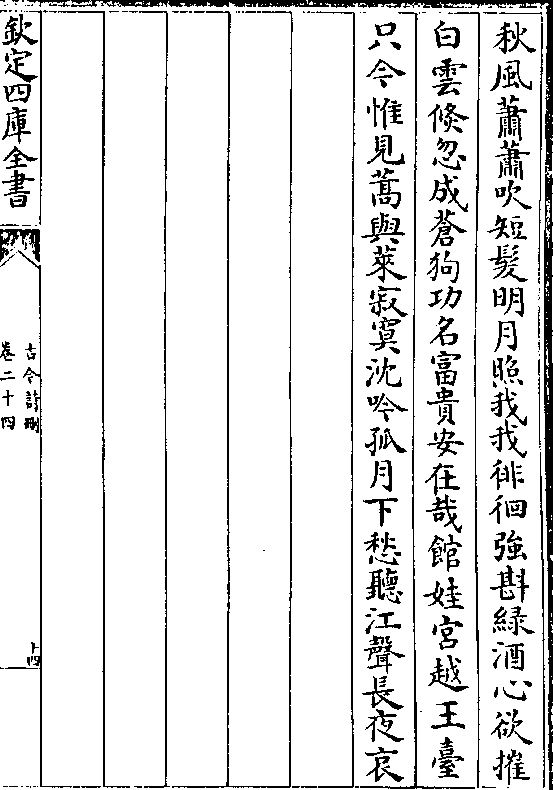 秋風蕭蕭吹短髮明月照我我徘徊強斟緑酒心欲摧
白雲倐忽成蒼狗功名富貴安在哉館娃宮越王臺
只今惟見蒿與萊寂寞沈吟孤月下愁聽江聲長夜哀
欽定四庫全書
古今詩刪
卷二十四
十四